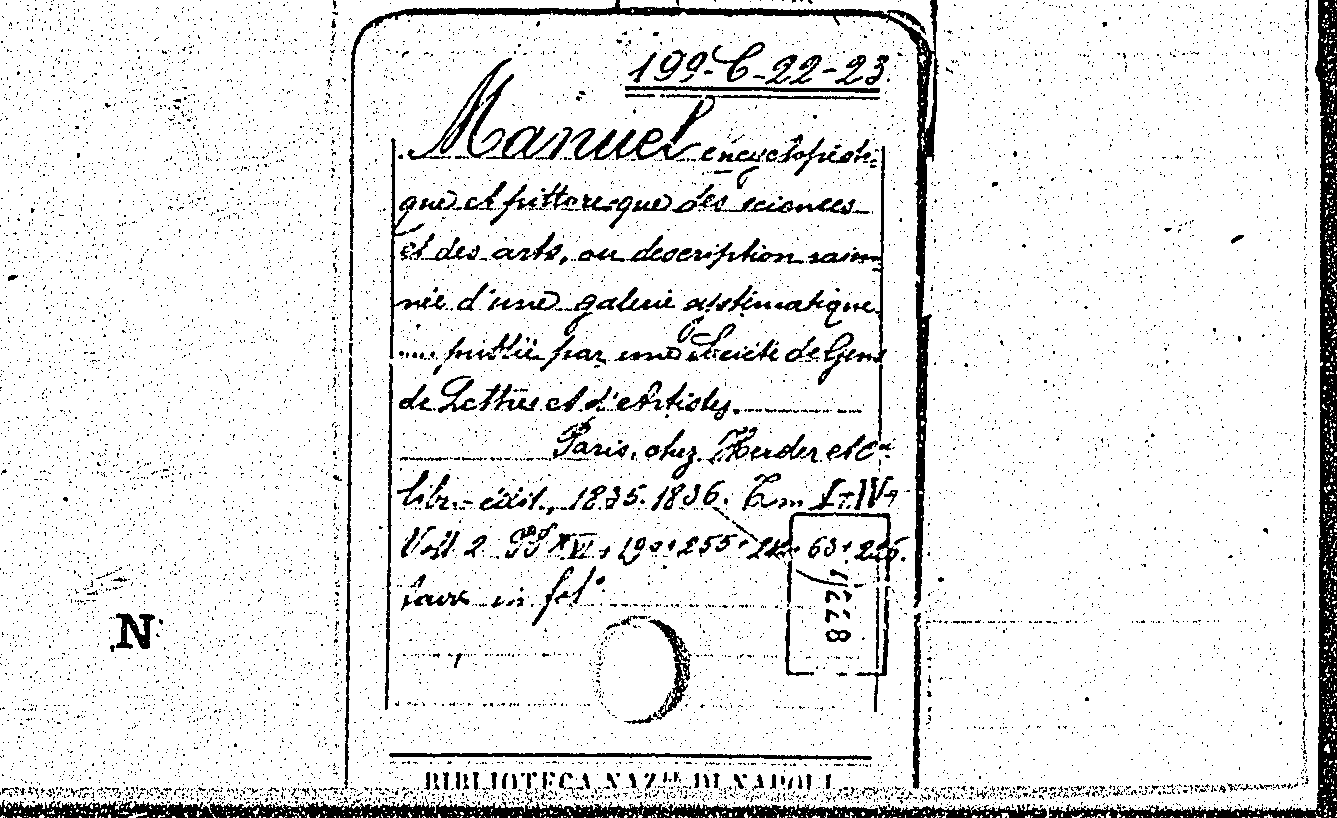 199-C-22-23
Manuel encyclopédi-
que et pittoresque des sciences
et des arts, ou description raison-
née d'une galerie systématique
.... publiée par une Société de Gens
de Lettres et d'Artistes.
Paris, chez Herder et Cie
libr.-édit., 1835.1836. Tm. I+IV
Voll 2 PP XVI + 190+255+ 63+
tavv in fol.
N
BIBLIOTECA NAZ.LE DI NAPOLI